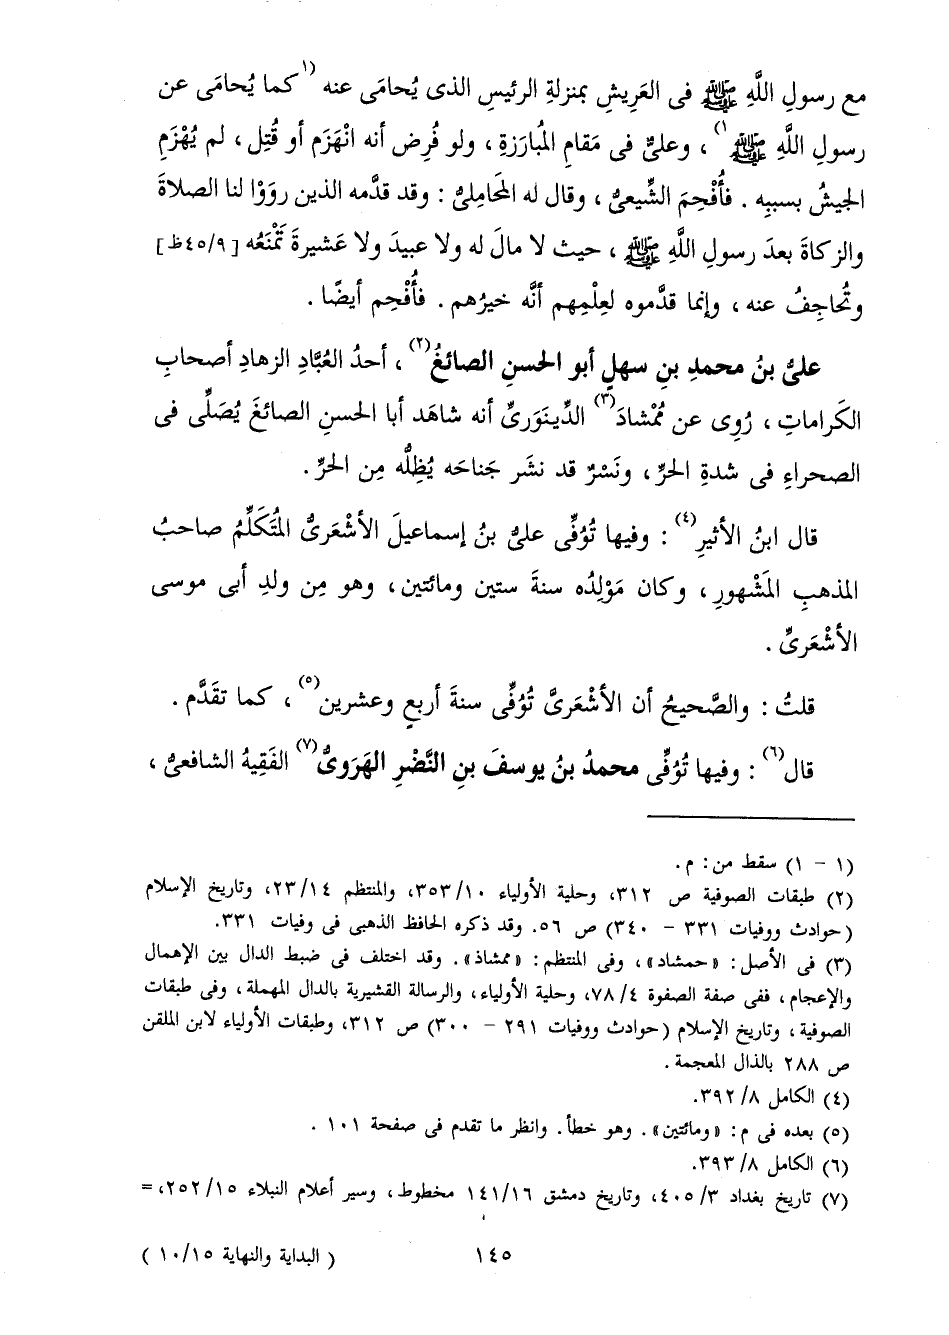 مع رسولِ اللَّهِ ﷺ فى العَرِيشِ بمنزلةِ الرئيسِ الذى يُحامَى عنه (١كما يُحامَى عن
رسولِ اللَّهِ ﷺ١) ، وعلىٌّ فى مَقامِ المُبارَزةِ ، ولو فُرِض أنه انْهَزَم أو قُتِل ، لم يُهْزَمِ
الجيشُ بسببِه . فأُفْحِمَ الشِّيعىُّ ، وقال له المَحامِلىُّ : وقد قدَّمه الذين روَوْا لنا الصلاةَ
والزكاةَ بعدَ رسولِ اللَّهِ ﷺ ، حيث لا مالَ له ولا عبيدَ ولا عَشيرةَ تَمْنَعُه [ ٤٥/٩ظ]
وتُحاجِفُ عنه ، وإنما قدَّموه لعِلْمِهم أنَّه خيرُهم . فأُفْحِم أيضًا .
علىُّ بنُ محمدِ بنِ سهلٍ أبو الحسنِ الصائغُ(٢) ، أحدُ العُبَّادِ الزهادِ أصحابِ
الكَراماتِ ، رُوِى عن مُمْشادَ(٣) الدِّينَوَرىِّ أنه شاهَد أبا الحسنِ الصائغَ يُصَلِّى فى
الصحراءِ فى شدةِ الحرِّ ، ونَسْرٌ قد نشَر جَناحَه يُظِلُّه مِن الحرِّ .
قال ابنُ الأثيرِ(٤) : وفيها تُوُفِّى علىُّ بنُ إسماعيلَ الأشْعَرىُّ المُتَكَلِّمُ صاحبُ
المذهبِ المَشْهورِ ، وكان مَوْلِدُه سنةَ ستين ومائتين ، وهو مِن ولدِ أبى موسى
الأشْعَرىِّ .
قلتُ : والصَّحيحُ أن الأشْعَرىَّ تُوُفِّى سنةَ أربعٍ وعشرين(٥) ، كما تقَدَّم .
قال(٦) : وفيها تُوُفِّى محمدُ بنُ يوسفَ بنِ النَّضْرِ الهَرَوىُّ(٧) الفَقِيهُ الشافعىُّ ،
(١ - ١) سقط من : م .
(٢) طبقات الصوفية ص ٣١٢، وحلية الأولياء ٣٥٣/١٠، والمنتظم ٢٣/١٤، وتاريخ الإسلام
(حوادث ووفيات ٣٣١ - ٣٤٠) ص ٥٦. وقد ذكره الحافظ الذهبى فى وفيات ٣٣١.
(٣) فى الأصل : «حمشاد» ، وفى المنتظم : «ممشاذ» . وقد اختلف فى ضبط الدال بين الإهمال
والإعجام ، ففى صفة الصفوة ٧٨/٤، وحلية الأولياء ، والرسالة القشيرية بالدال المهملة ، وفى طبقات
الصوفية ، وتاريخ الإسلام (حوادث ووفيات ٢٩١ - ٣٠٠) ص ٣١٢، وطبقات الأولياء لابن الملقن
ص ٢٨٨ بالذال المعجمة .
(٤) الكامل ٣٩٢/٨.
(٥) بعده فى م : «ومائتين» . وهو خطأ . وانظر ما تقدم فى صفحة ١٠١ .
(٦) الكامل ٣٩٣/٨.
(٧) تاريخ بغداد ٤٠٥/٣، وتاريخ دمشق ١٤١/١٦ مخطوط ، وسير أعلام النبلاء ٢٥٢/١٥، =
١٤٥
( البداية والنهاية ١٠/١٥ )